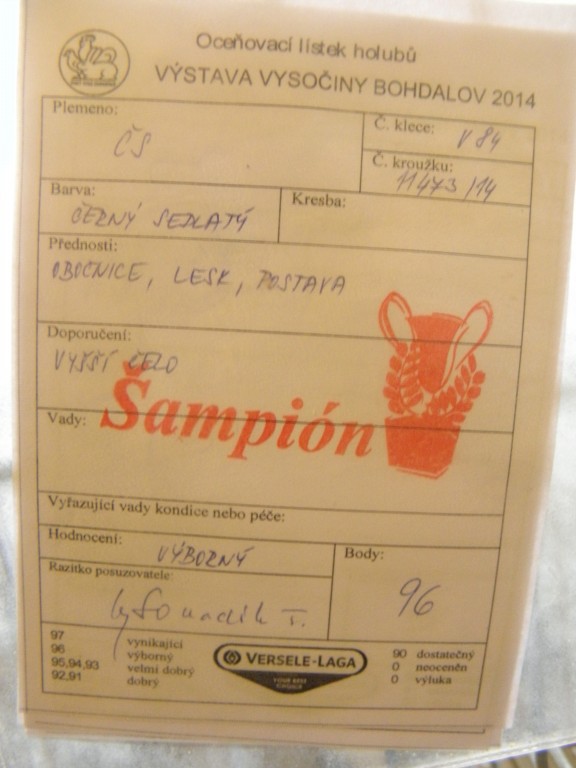 Oceňovací lístek holubů
VÝSTAVA VYSOČINY BOHDALOV 2014
Plemeno:
ČS
Č. klece: V 84
Č. kroužku:
11473/14
Barva:
ČERNÝ SEDLATÝ
Kresba:
Přednosti:
OBOČNICE, LESK, POSTAVA
Doporučení:
VYŠŠÍ ČELO
Šampión
Vady:
Vyřazující vady kondice nebo péče:
Hodnocení:
VÝBORNÝ
Body:
96
Razítko posuzovatele:
97 vynikající
96 výborný
95,94,93 velmi dobrý
92,91 dobrý
VERSELE-LAGA
YOUR BEST
CHOICE
90 dostatečný
0 neoceněn
0 výluka